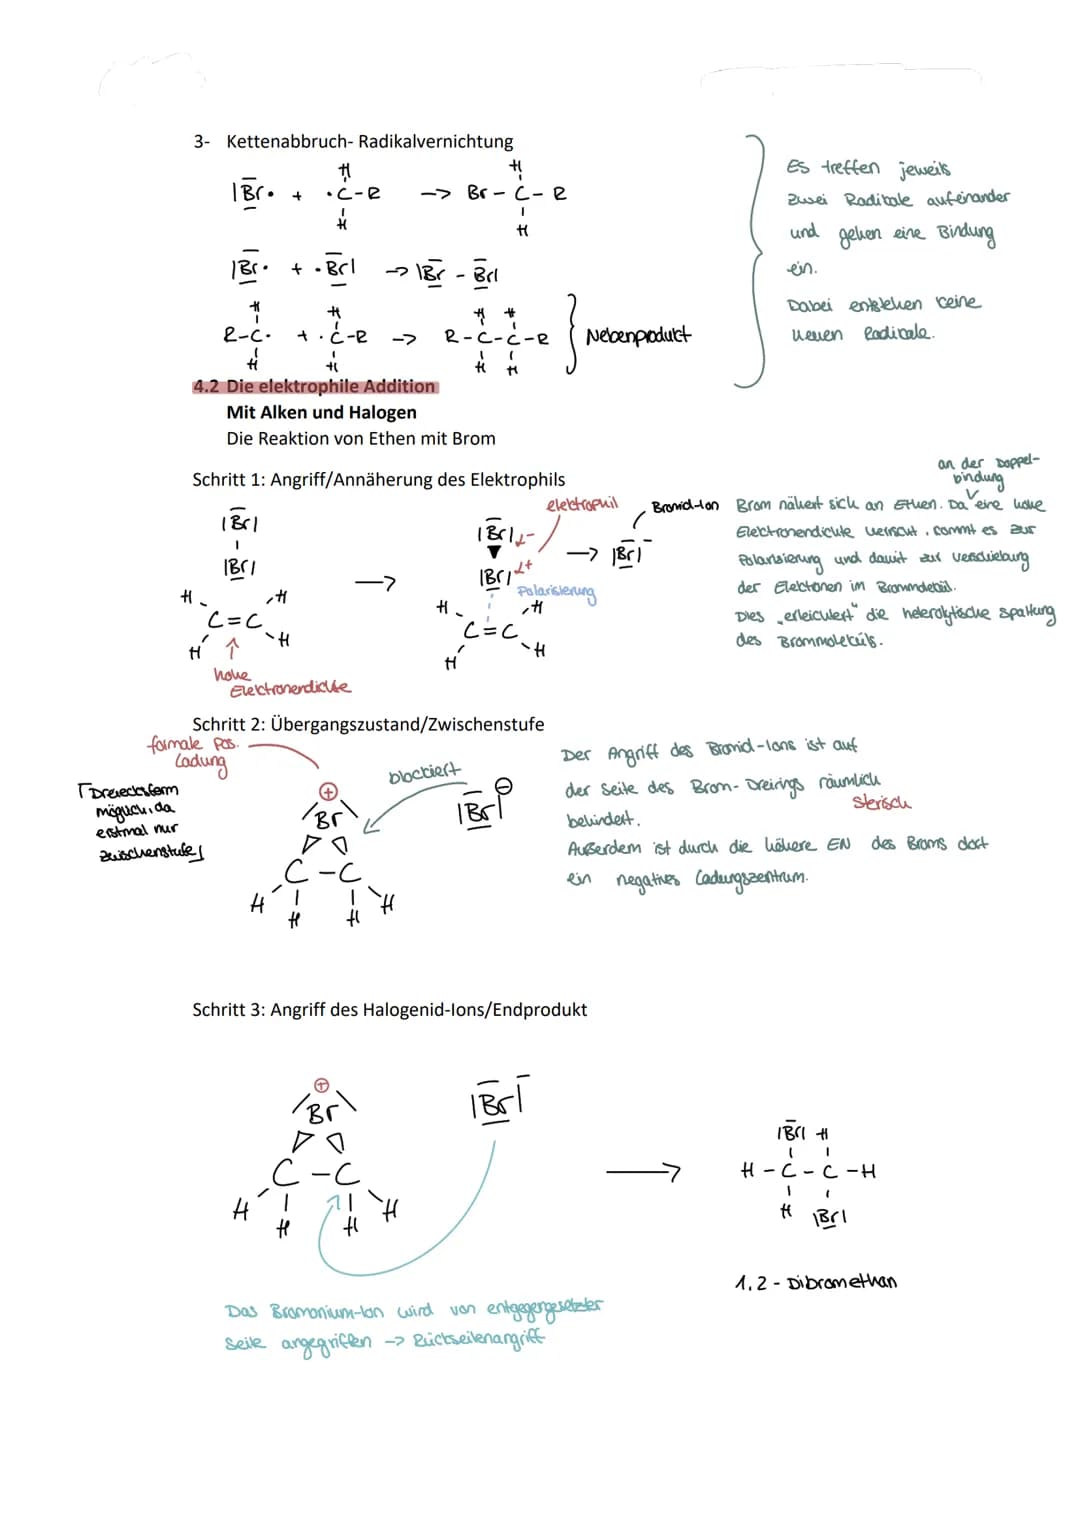 3- Kettenabbruch- Radikalvernichtung
H H
|Br• + •C-R -> Br - C - R
H H
|Br• + •Br| -> |Br - Br|
H H H H
R-C• + •C-R -> R-C-C-R Nebenprodukt
H H H H
Es treffen jeweils
zwei Radikale aufeinander
und gehen eine Bindung
ein.
Dabei entstehen keine
neuen Radikale.
4.2 Die elektrophile Addition
Mit Alken und Halogen
Die Reaktion von Ethen mit Brom
Schritt 1: Angriff/Annäherung des Elektrophils
|Br|
|Br|
H H
C=C
H H
hohe
Elektronendichte
->
elektrophil
|Br| δ-
|Br| δ+
Polarisierung
H H
C=C
H H
->
Bromid-Ion
|Br|⁻
an der Doppel-
bindung
Brom nähert sich an Ethen. Da eine hohe
Elektronendichte herrscht, kommt es zur
Polarisierung und damit zur Verschiebung
der Elektronen im Brommolekül.
Dies „erleichtert" die heterolytische Spaltung
des Brommoleküls.
Schritt 2: Übergangszustand/Zwischenstufe
formale Pos.
Ladung
Dreiecksform
möglich, da
erstmal nur
Zwischenstufe
⊕
Br
C-C
H H H H
blockiert
|Br| ⊖
Der Angriff des Bromid-Ions ist auf
der Seite des Brom-Dreirings räumlich
sterisch
behindert.
Außerdem ist durch die höhere EN des Broms dort
ein negatives Ladungszentrum.
Schritt 3: Angriff des Halogenid-Ions/Endprodukt
⊕
Br
C-C
H H H H
|Br|⁻
->
|Br| H
H-C-C-H
H |Br|
1,2-Dibromethan
Das Bromonium-Ion wird von entgegengesetzter
Seite angegriffen -> Rückseitenangriff